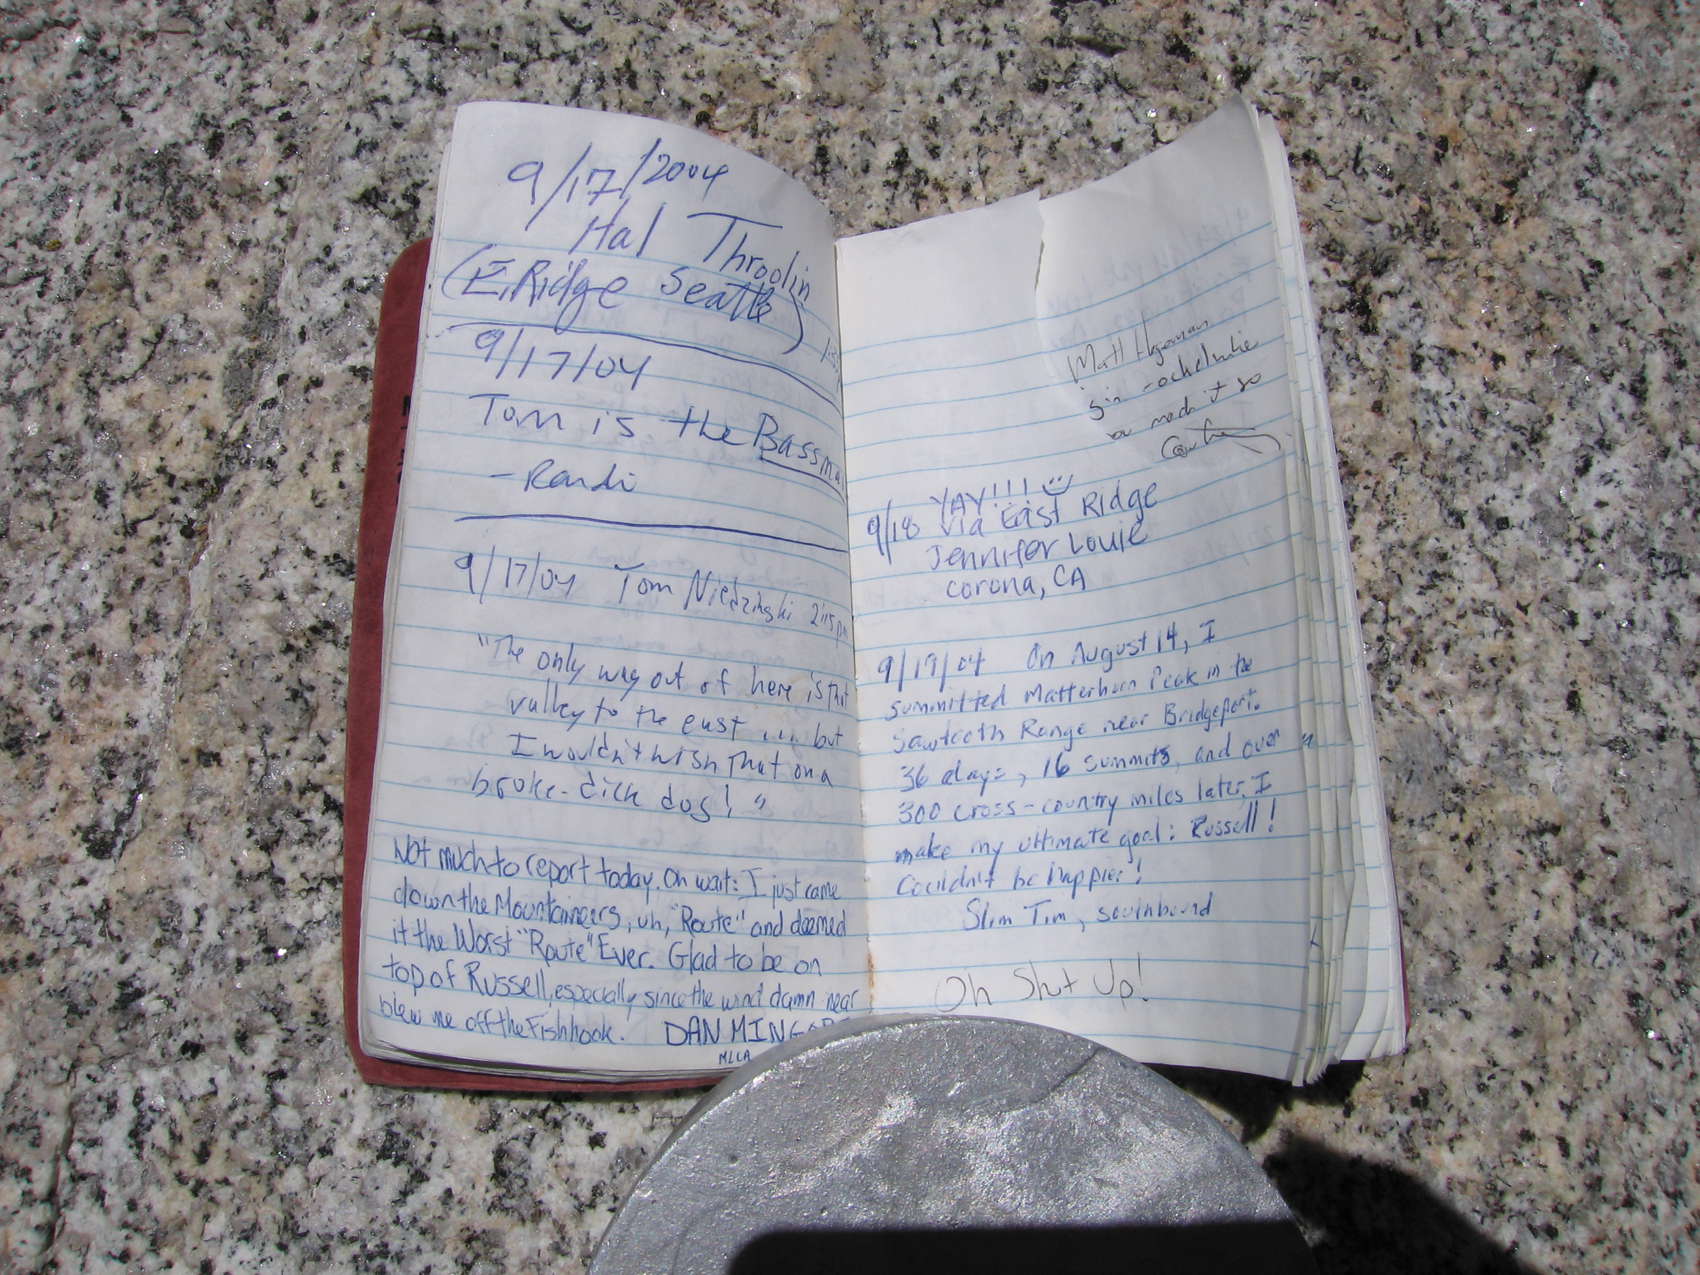 9/17/2004
Hal Throolin
(E. Ridge Seattle)
9/17/04
Tom is the Bassma
- Randi
9/17/04 Tom Niedzinski 2:15 pm
"The only way out of here is that
valley to the east ... but
I wouldn't wish that on a
broke-dick dog!"
Not much to report today. Oh wait: I just came
down the Mountaineers, uh, "Route" and deemed
it the Worst "Route" Ever. Glad to be on
top of Russell, especially since the wind damn near
blew me off the Fishhook. DAN MINGO
MLLA
Matt
made it so
YAY!!!
9/18 via East Ridge
Jennifer Louie
Corona, CA
9/19/04 On August 14, I
summitted Matterhorn Peak in the
Sawtooth Range near Bridgeport.
36 days, 16 summits, and over
300 cross-country miles later, I
make my ultimate goal: Russell!
Couldn't be happier!
Slim Tim, southbound
Oh Shut Up!